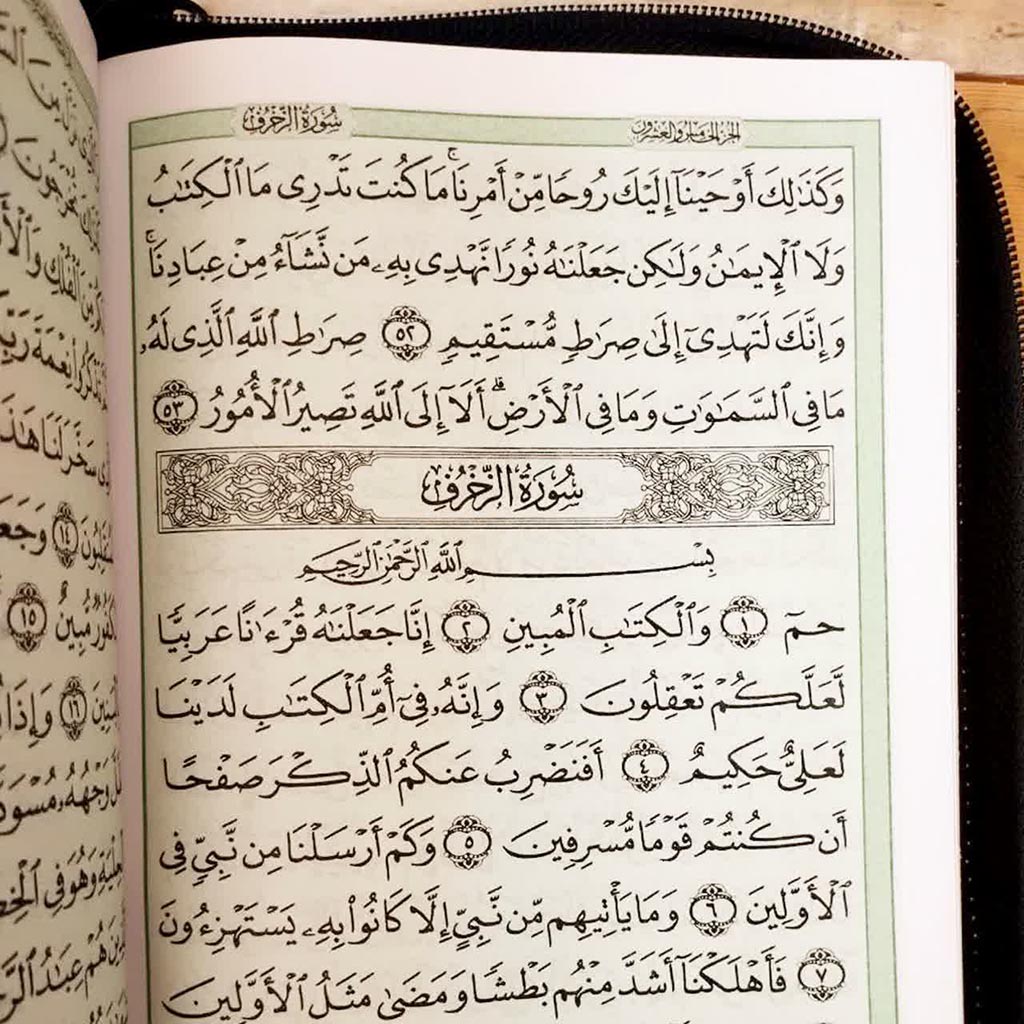 سُورَةُ الزُّخْرُفِ
الجزء الخامس والعشرون
وَكَذَٰلِكَ أَوْحَيْنَآ إِلَيْكَ رُوحًا مِّنْ أَمْرِنَا ۚ مَا كُنتَ تَدْرِى مَا ٱلْكِتَٰبُ
وَلَا ٱلْإِيمَٰنُ وَلَٰكِن جَعَلْنَٰهُ نُورًا نَّهْدِى بِهِۦ مَن نَّشَآءُ مِنْ عِبَادِنَا ۚ
وَإِنَّكَ لَتَهْدِىٓ إِلَىٰ صِرَٰطٍ مُّسْتَقِيمٍ ٥٢ صِرَٰطِ ٱللَّهِ ٱلَّذِى لَهُۥ
مَا فِى ٱلسَّمَٰوَٰتِ وَمَا فِى ٱلْأَرْضِ ۗ أَلَآ إِلَى ٱللَّهِ تَصِيرُ ٱلْأُمُورُ ٥٣
سُورَةُ الزُّخْرُفِ
بِسْمِ ٱللَّهِ ٱلرَّحْمَٰنِ ٱلرَّحِيمِ
حمٓ ١ وَٱلْكِتَٰبِ ٱلْمُبِينِ ٢ إِنَّا جَعَلْنَٰهُ قُرْءَٰنًا عَرَبِيًّا
لَّعَلَّكُمْ تَعْقِلُونَ ٣ وَإِنَّهُۥ فِىٓ أُمِّ ٱلْكِتَٰبِ لَدَيْنَا
لَعَلِىٌّ حَكِيمٌ ٤ أَفَنَضْرِبُ عَنكُمُ ٱلذِّكْرَ صَفْحًا
أَن كُنتُمْ قَوْمًا مُّسْرِفِينَ ٥ وَكَمْ أَرْسَلْنَا مِن نَّبِىٍّ فِى
ٱلْأَوَّلِينَ ٦ وَمَا يَأْتِيهِم مِّن نَّبِىٍّ إِلَّا كَانُوا۟ بِهِۦ يَسْتَهْزِءُونَ
٧ فَأَهْلَكْنَآ أَشَدَّ مِنْهُم بَطْشًا وَمَضَىٰ مَثَلُ ٱلْأَوَّلِينَ
ٱلْفُلْكِ
نِعْمَةَ
سَخَّرَ لَنَا هَٰذَا
١٤
مُّبِينٌ ١٥
١٦ وَإِذَا
وَجْهُهُۥ
وَهُوَ فِى
هُمْ عِبَٰدُ